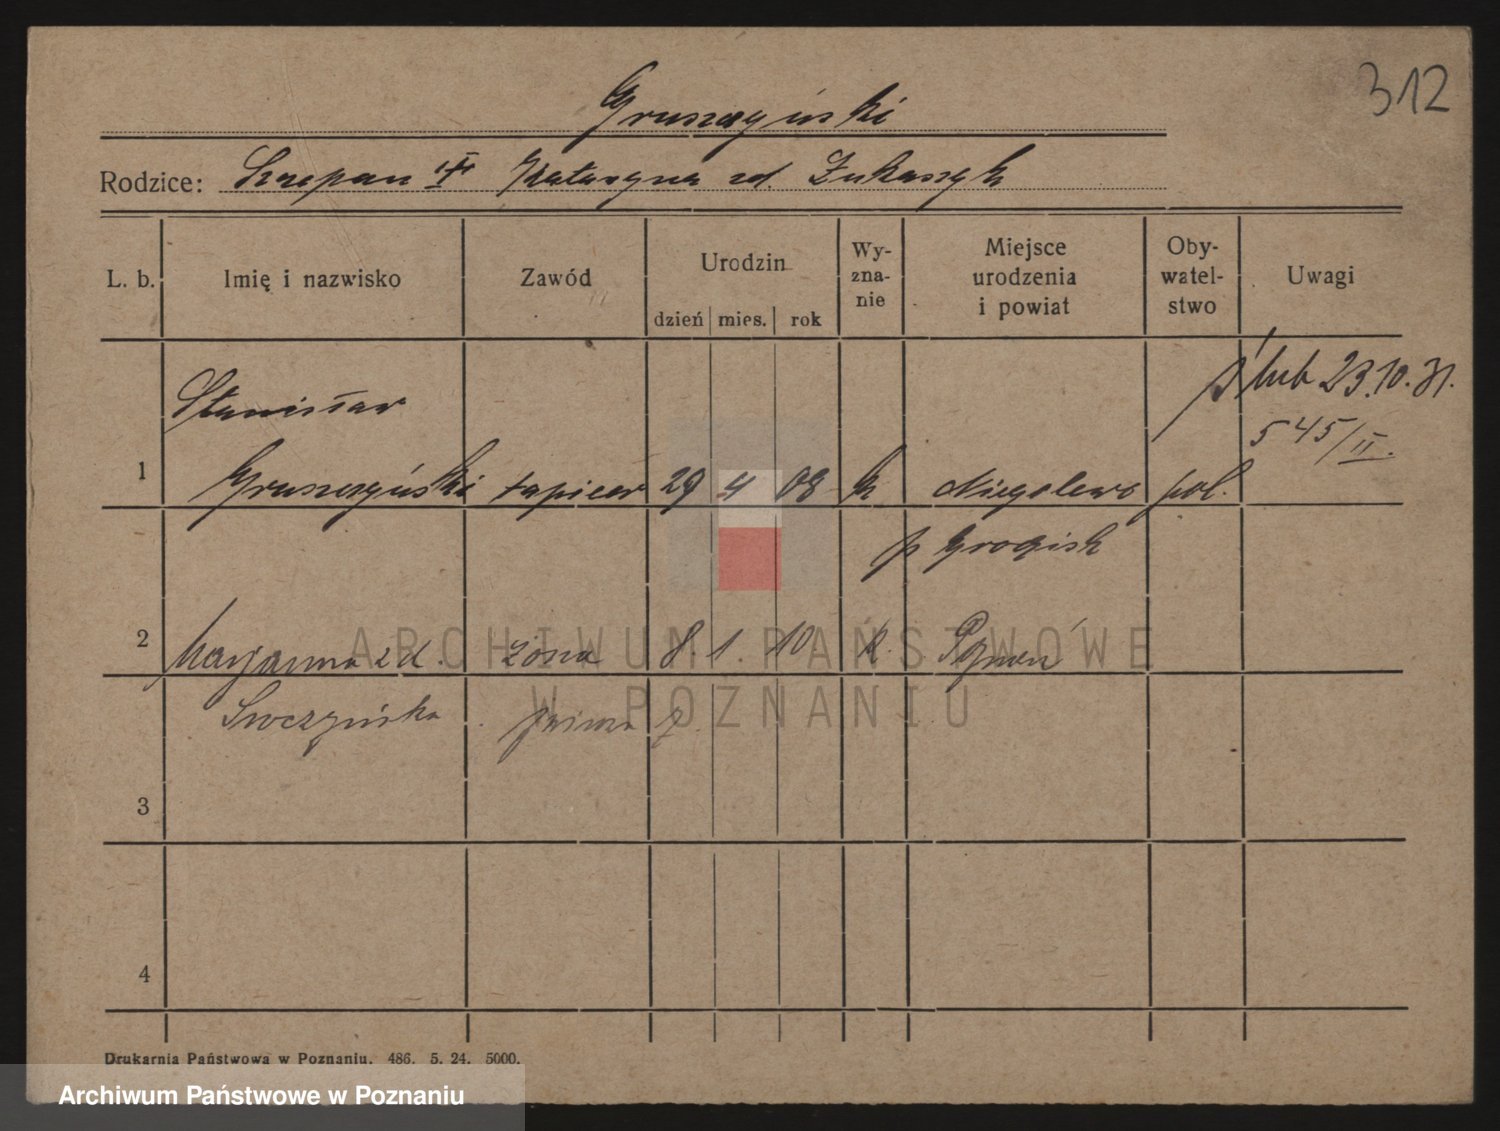 312
Gruszczyński
Rodzice: Szczepan Katarzyna zd. Łukaszyk
L. b. Imię i nazwisko Zawód Urodzin dzień mies. rok Wy-zna-nie Miejsce urodzenia i powiat Oby-watel-stwo Uwagi
Stanisław ślub 23.10.31.
545/II.
1 Gruszczyński tapicer 29 4 08 k Niegolewo pol.
p Grodzisk
2 Marjanna zd. żona 8. 1. 10 k. Poznań
Swoczyńska
3
4
Drukarnia Państwowa w Poznaniu. 486. 5. 24. 5000.
ARCHIWUM PAŃSTWOWE
W POZNANIU
Archiwum Państwowe w Poznaniu